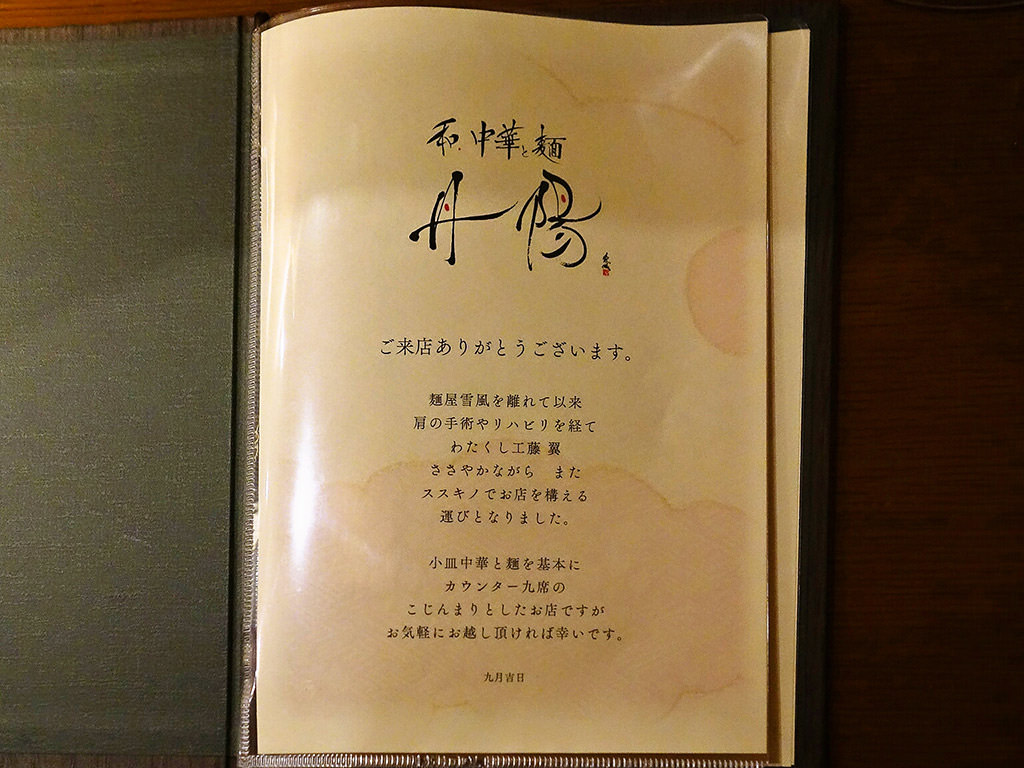 和、中華と麺
丹陽
ご来店ありがとうございます。
麺屋雪風を離れて以来
肩の手術やリハビリを経て
わたくし工藤 翼
ささやかながら　また
ススキノでお店を構える
運びとなりました。
小皿中華と麺を基本に
カウンター九席の
こじんまりとしたお店ですが
お気軽にお越し頂ければ幸いです。
九月吉日